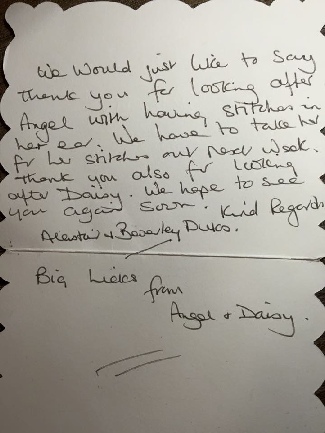 We would just like to say
thank you for looking after
Angel with having stitches in
her ear. We have to take her
for her stitches out next week.
Thank you also for looking
after Daisy. We hope to see
you again soon. Kind Regards
Alastair & Beverley
Big Licks
from
Angel & Daisy.